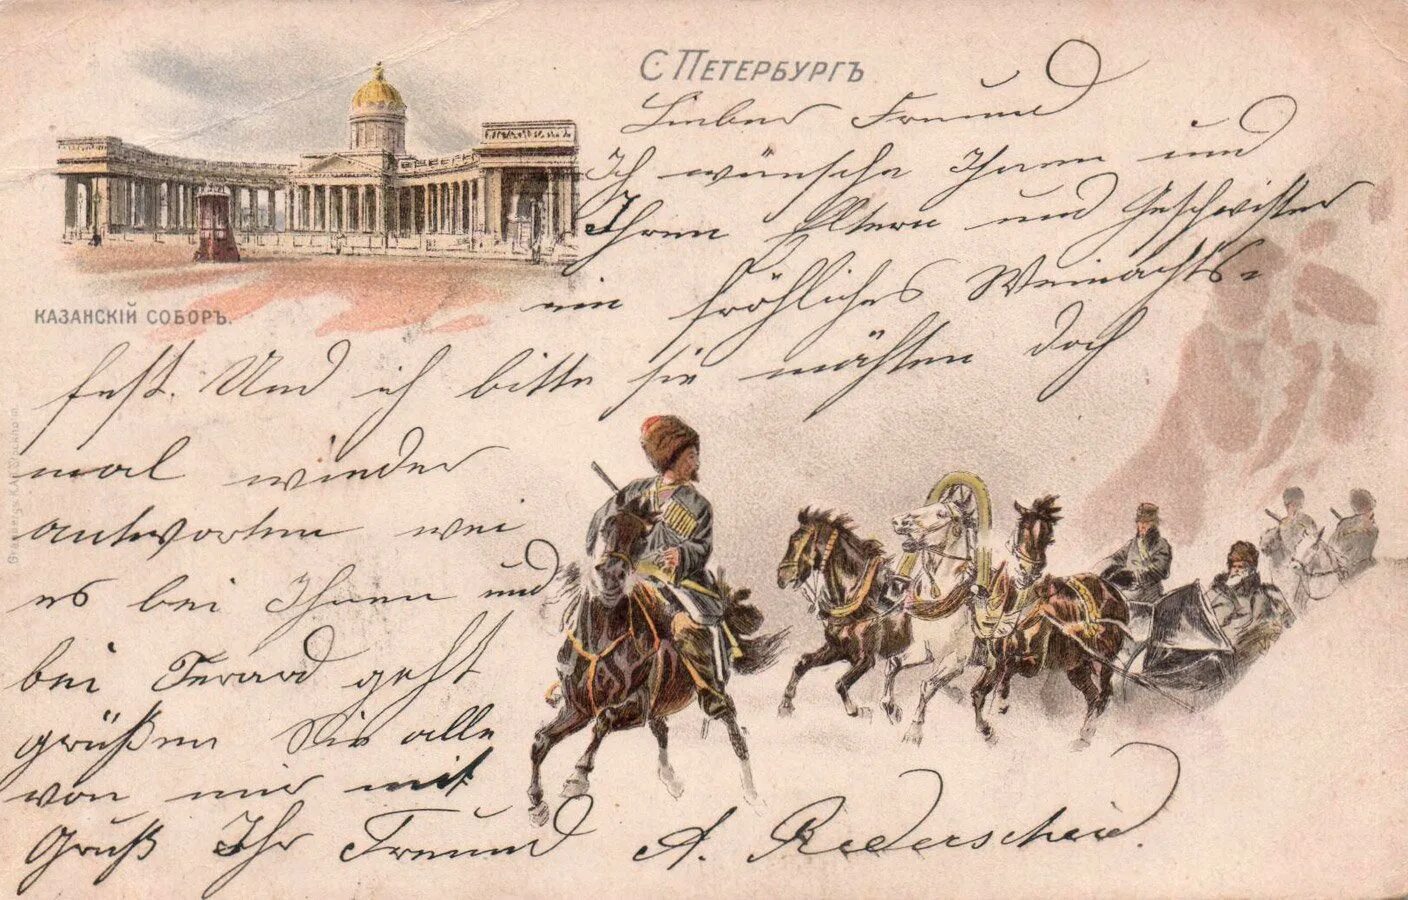 С ПЕТЕРБУРГЪ
КАЗАНСКІЙ СОБОРЪ.
Lieber Freund
Ich wünsche Ihnen und
Ihren Eltern und Geschwister
ein fröhliches Weinachts-
fest. Und ich bitte sie möchten doch
mal wieder
antworten wei
es bei Ihnen und
bei geht
grüßen Sie alle
von mir mit
Gruß Ihr Freund A. Rederscheid.